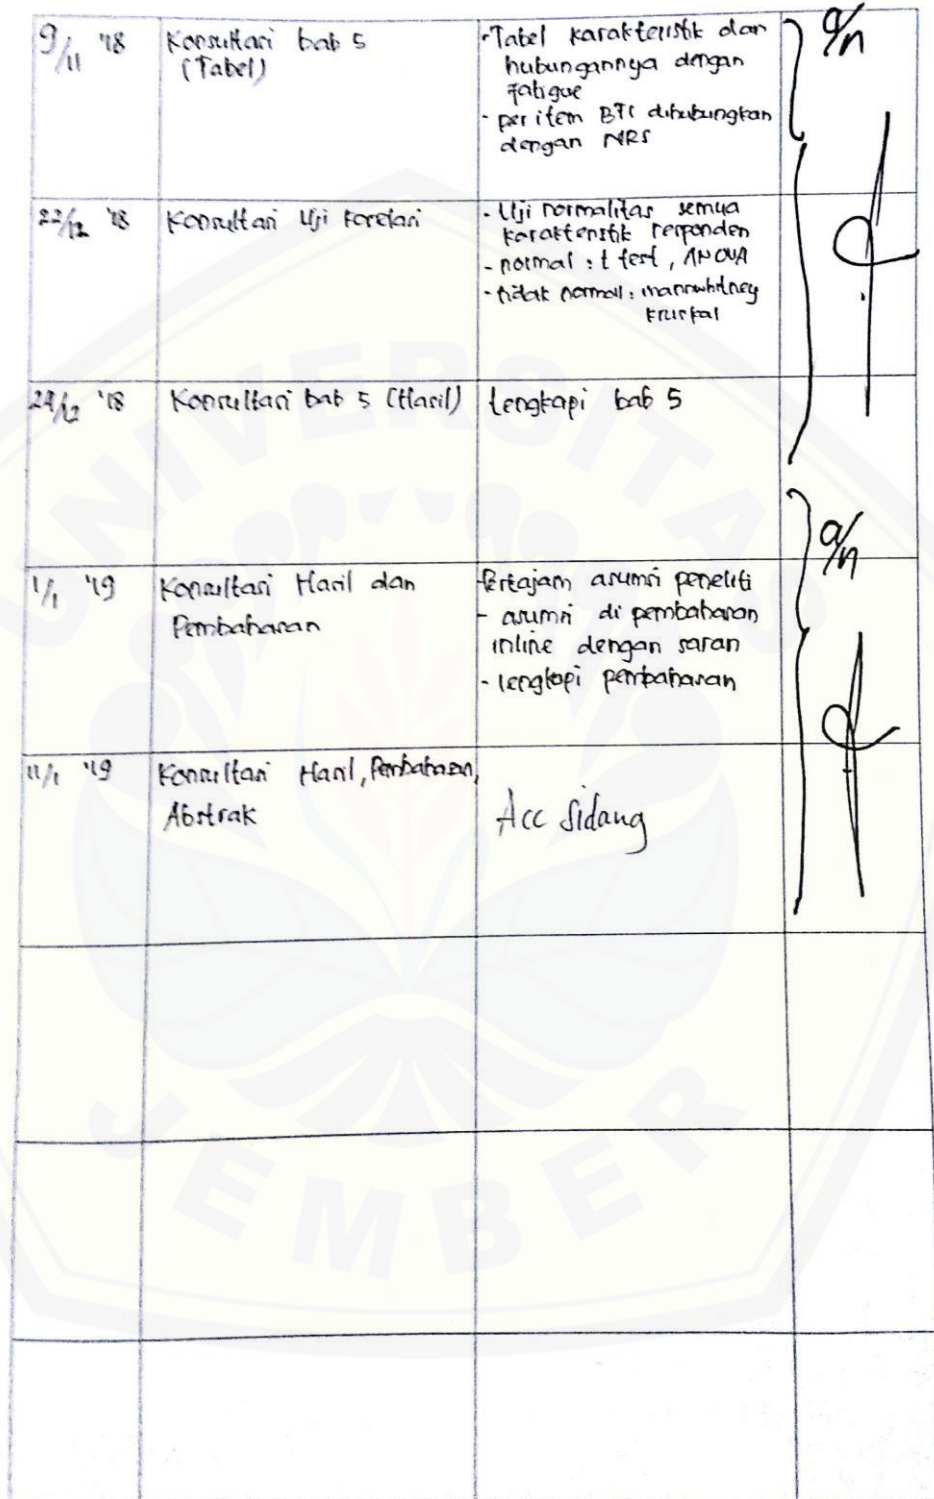 9/11 '18
Konsultasi bab 5
(Tabel)
- Tabel karakteristik dan
hubungannya dengan
fatigue
- per item BFI dihubungkan
dengan NRS
a/n
22/12 '18
Konsultasi Uji korelasi
- Uji normalitas semua
karakteristik responden
- normal : t test, ANOVA
- tidak normal : mannwhitney
kruskal
24/12 '18
Konsultasi bab 5 (Hasil)
lengkapi bab 5
a/n
1/1 '19
Konsultasi Hasil dan
Pembahasan
- Pertajam asumsi peneliti
- asumsi di pembahasan
inline dengan saran
- lengkapi pembahasan
11/1 '19
Konsultasi Hasil, Pembahasan,
Abstrak
Acc Sidang
UNIVERSITAS
JEMBER